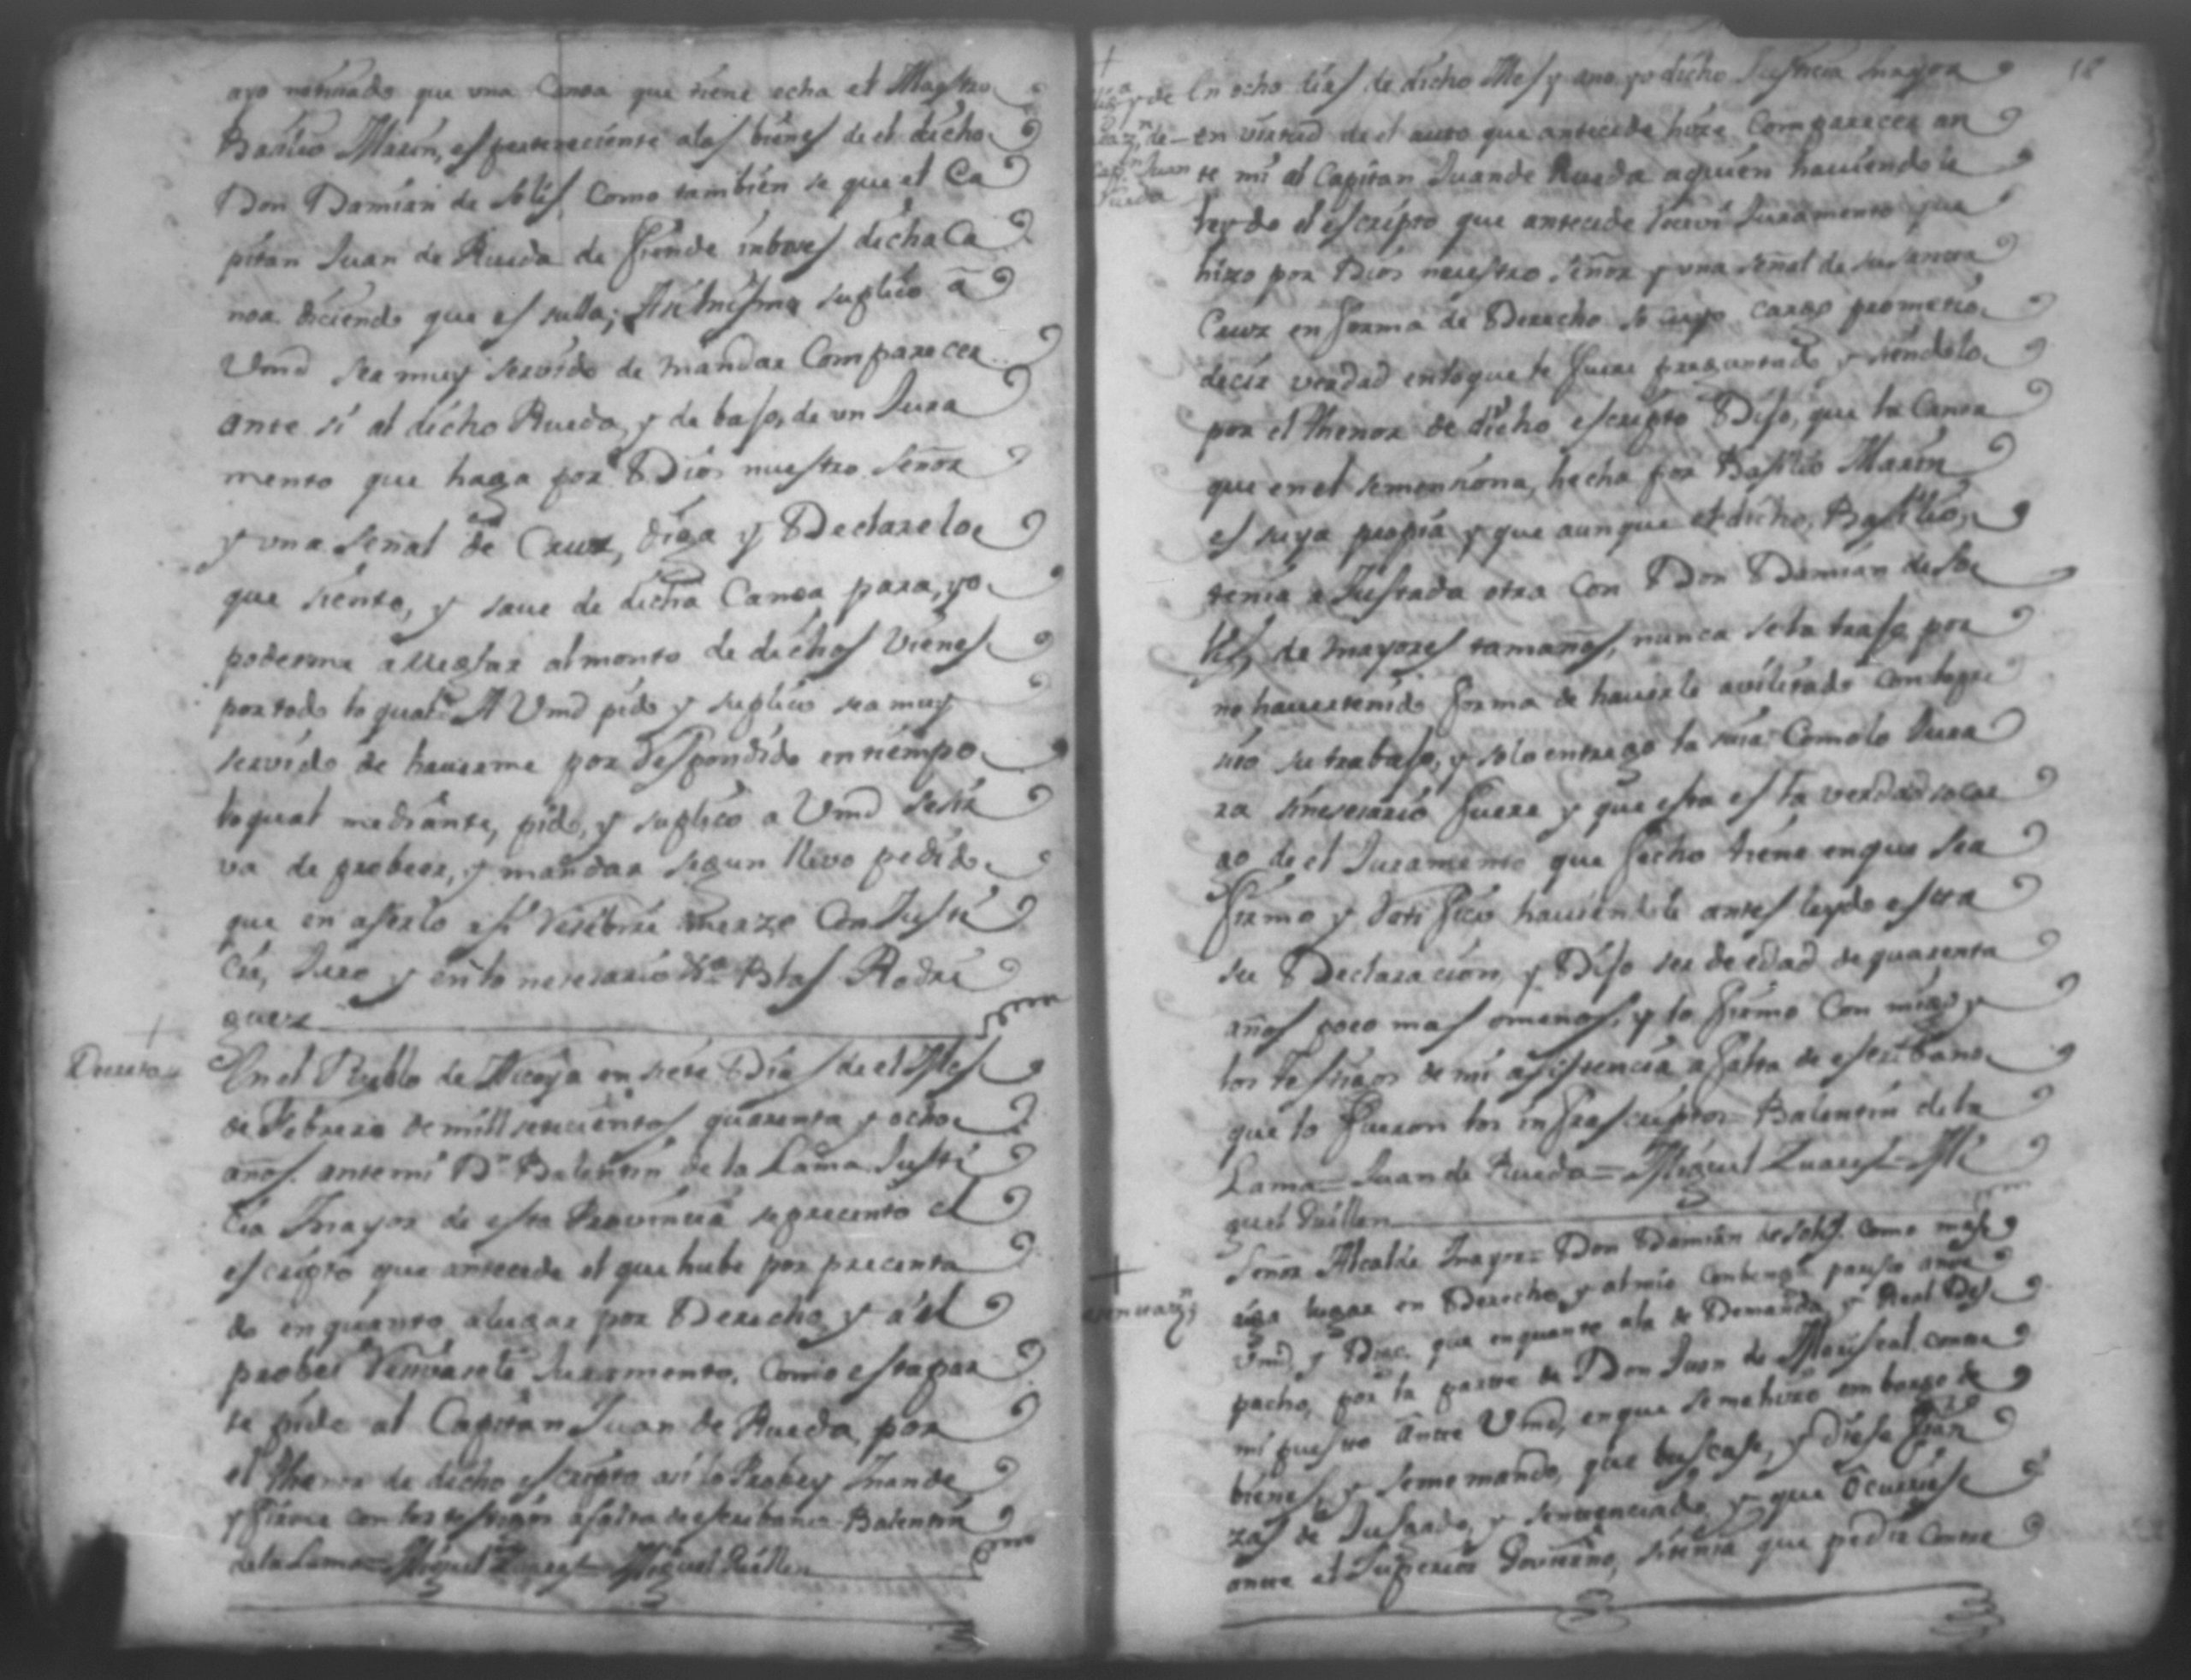 ayo notiziado que una Canoa que tiene echa el Maestro
Basilio Marin, es perteneciente a los bienes de el dicho
Don Damian de Solis, como tambien se que el Ca
pitan Juan de Rueda defiende imbores dicha Ca
noa diciendo que es sulla; Asimesmo suplico a
Vmd sea muy servido de mandar Comparecer
ante si al dicho Rueda, y de baso, de un Jura
mento que haga por Dios nuestro Señor
y una señal de Cruz, diga y Declare lo
que siento, y save de dicha Canoa para, yo
poderme allegar al monto de dichos Vienes
por todo lo qual A Vmd pido y suplico sea muy
servido de haverme por Respondido en tiempo
lo qual mediante, pido, y suplico a Vmd se sir
va de probeer, y mandar segun llevo pedido
que en aserlo asi Resibire merze Con Justi
cia, Juro y en lo nesesario Va Blas Rodri
guez
Decreto
En el Pueblo de Nicoya en siete Dias de el Mes
de Febrero de mill setecientos quarenta y ocho
años. ante mi Dn Balentin de la Lama Justi
cia mayor de esta Provincia se precento el
escripto que antecede el que hube por precenta
do en quanto a lugar por Derecho, y a el
probei Resivasele Juramento, como esta par
te pide al Capitan Juan de Rueda, por
el thenor de dicho escripto asi lo Probey mande
y firme con los testigos a falta de escribano Balentin
de la Lama= Miguel Zuares= Miguel Guillen
18
En ocho dias de dicho Mes y ano yo dicho Justicia mayor
en virtud de el auto que antecede hize Comparecer an
te mi al Capitan Juan de Rueda a quien haviendole
leydo el escripto que antecede Recivi Juramento que
hizo por Dios nuestro Señor y una señal de su santa
Cruz en forma de Derecho so cuyo cargo prometio
decir verdad en lo que le fuere preguntado y siendolo
por el thenor de dicho escripto Dijo, que la Canoa
que en el se menziona, hecha por Basilio Marin
es suya propia y que aunque el dicho, Basilio,
tenia a Justada otra Con Don Damian de So
lis, de mayores tamaños, nunca se la trajo por
no haver tenido forma de haverle avilitado con lo pre
siso su trabajo, y solo entrego la mia Como lo Jura
ra si nesesario fuere y que esta es la verdad so car
go de el Juramento que fecho tiene en que se a
firmo y Ratifico haviendole antes leydo esta
su Declaracion y Dijo ser de edad de quarenta
años poco mas omenos, y lo firmo Con migo y
los testigos de mi asistencia a falta de escribano
que lo fueron los infrascriptos Balentin de la
Lama= Juan de Rueda= Miguel Zuares= Mi
guel Guillen
Señor Alcalde mayor= Don Damian de Solis. como mas
aiga lugar en Derecho, y al mio Conbenga paresco ante
Vmd, y Digo. que en quanto a la de Demanda, y Real Des
pacho, por la parte de Don Juan de Mariscal contra
mi puesto ante Vmd, en que se me hizo embargo de
bienes, y se me mando, que buscase, y diese fian
zas de Jusgado, y sentenciado, y que Ocurriese
ante el Superior Govierno, si tenia que pedir Contra